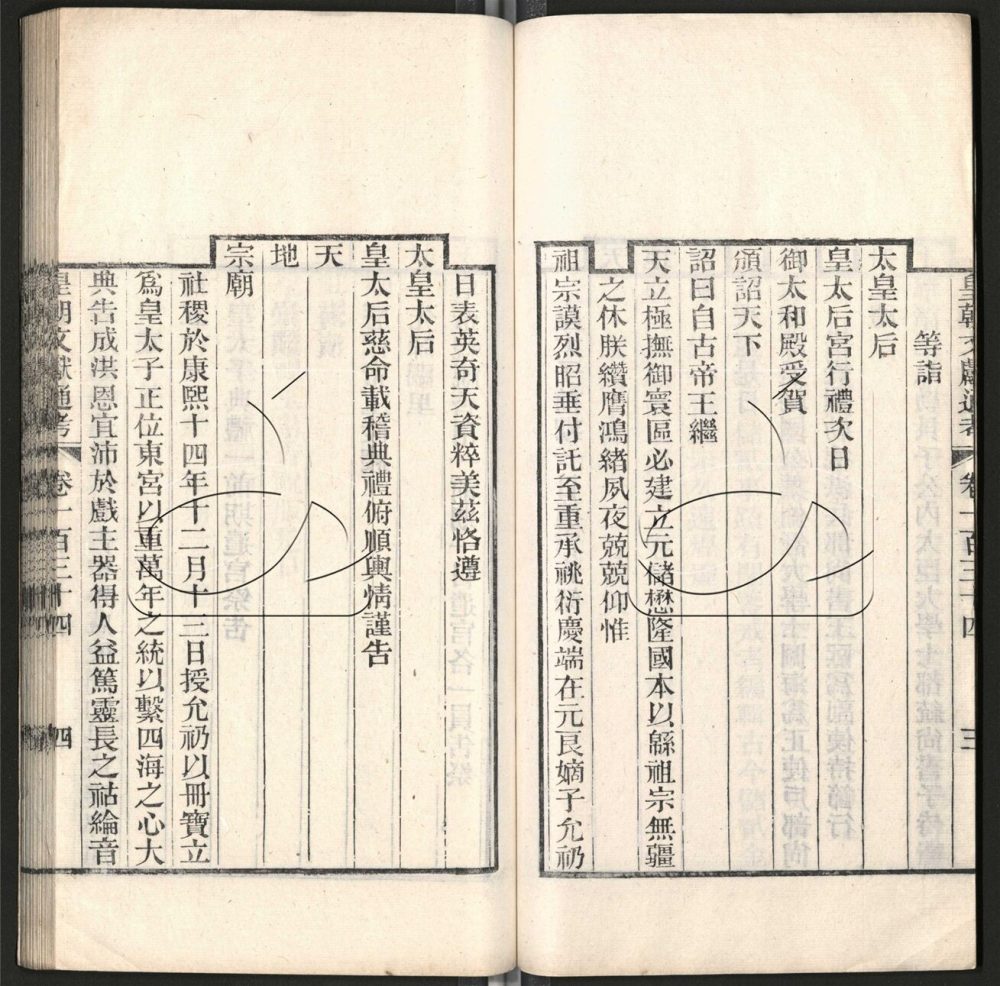 皇朝文獻通考 卷一百三十四 三
等詣
太皇太后
皇太后宮行禮次日
御太和殿受賀
頒詔天下
詔曰自古帝王繼
天立極撫御寰區必建立元儲懋隆國本以緜祖宗無疆
之休朕纘膺鴻緒夙夜兢兢仰惟
祖宗謨烈昭垂付託至重承祧衍慶端在元良嫡子允礽
日表英奇天資粹美茲恪遵
太皇太后
皇太后慈命載稽典禮俯順輿情謹告
天
地
宗廟
社稷於康熙十四年十二月十三日授允礽以冊寶立
爲皇太子正位東宮以重萬年之統以繫四海之心大
典告成洪恩宜沛於戲主器得人益篤靈長之祜綸音
皇朝文獻通考 卷一百三十四 四